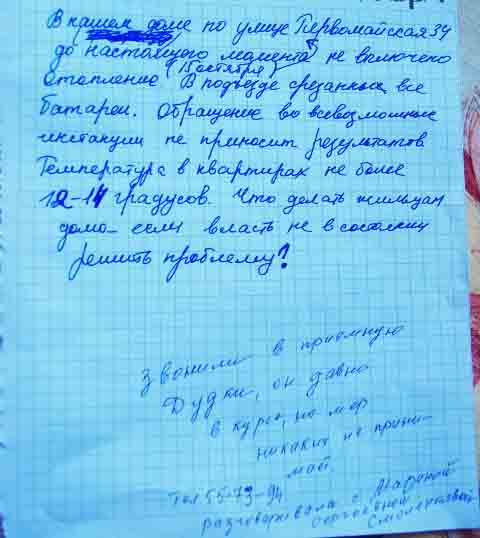 В нашем доме по улице Первомайская 34
до настоящего момента не включено
(15 октября)
отопление В подъезде срезанны все
батареи. Обращение во всевозможные
инстанции не приносит результатов
Температура в квартирах не более
12-14 градусов. Что делать жильцам
дома если власть не в состоянии
решить проблему?
Звонили в приемную
Дудки, он давно
в курсе, но мер
никаких не прини-
мает.
Тел 55-73-94
разговаривала с Мариной
Сергеевной
Смоленковой